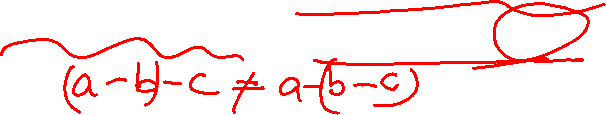 (a-b)-c ≠ a-(b-c)